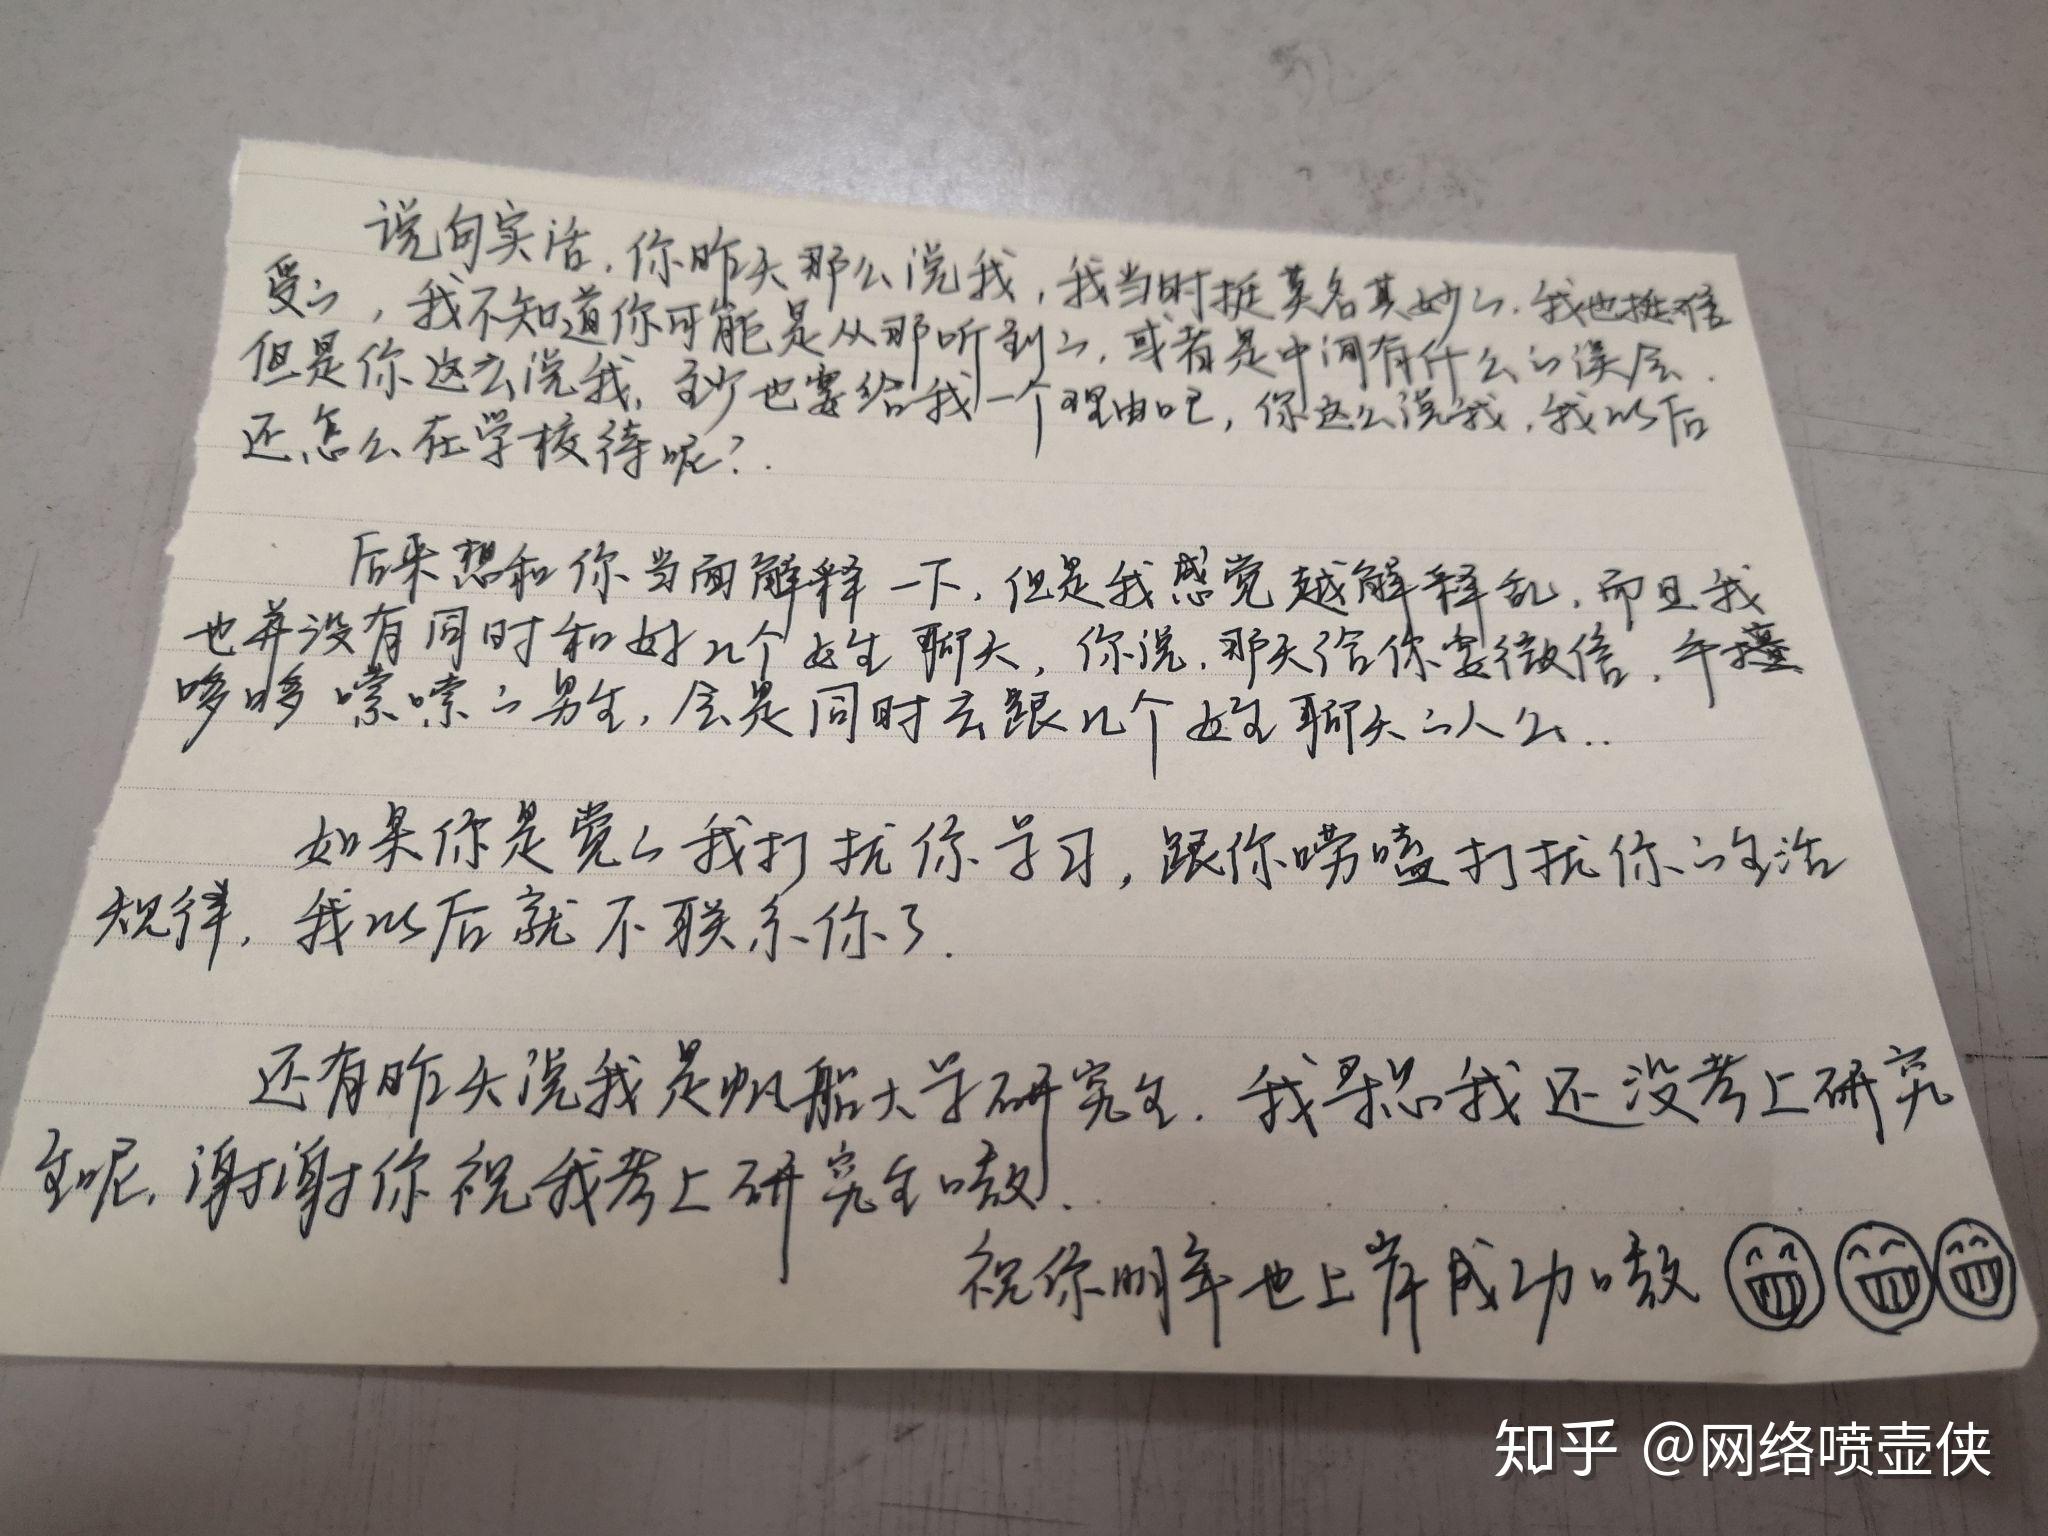 说句实话，你昨天那么说我，我当时挺莫名其妙的.我也挺难
受的，我不知道你可能是从那听到的，或者是中间有什么的误会.
但是你这么说我，至少也要给我一个理由吧，你这么说我，我以后
还怎么在学校待呢？.
后来想和你当面解释一下，但是我感觉越解释乱，而且我
也并没有同时和好几个女生聊天，你说，那天给你要微信，手
哆哆嗦嗦的男生，会是同时去跟几个女生聊天的人么..
如果你是觉的我打扰你学习，跟你唠嗑打扰你的生活
规律，我以后就不联系你了.
还有昨天说我是帆船大学研究生.我呆我还没考上研究
生呢，谢谢你祝我考上研究生嗷.
祝你明年也上岸成功嗷
知乎 @网络喷壶侠